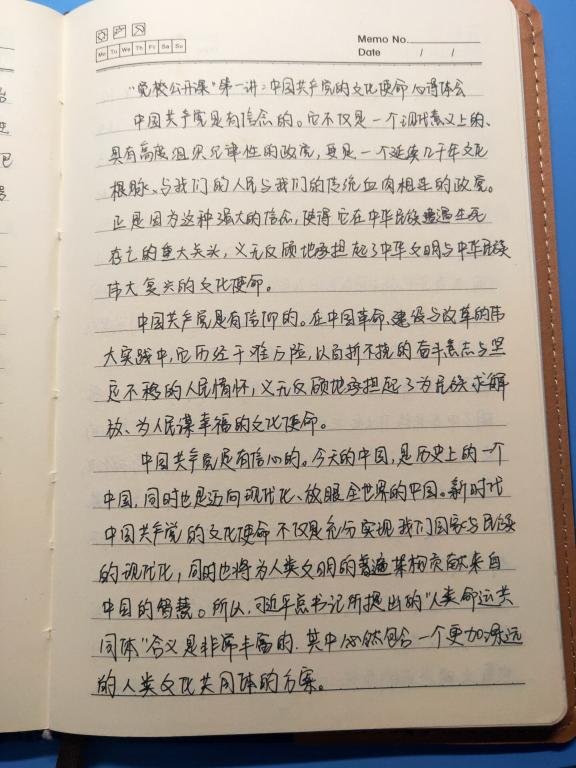 Memo No.
Mo Tu We Th Fr Sa Su
Date / /
“党校公开课”第一讲：中国共产党的文化使命心得体会
中国共产党是有信念的。它不仅是一个现代意义上的、
具有高度组织纪律性的政党，更是一个延续几千年文化
根脉、与我们的人民与我们的传统血肉相连的政党。
正是因为这种强大的信念，使得它在中华民族遭遇生死
存亡的重大关头，义无反顾地承担起了中华文明与中华民族
伟大复兴的文化使命。
中国共产党是有信仰的。在中国革命、建设与改革的伟
大实践中，它历经千难万险，以百折不挠的奋斗意志与坚
定不移的人民情怀，义无反顾地承担起了为民族求解
放、为人民谋幸福的文化使命。
中国共产党是有信心的。今天的中国，是历史上的一个
中国，同时也是迈向现代化、放眼全世界的中国。新时代
中国共产党的文化使命不仅是充分实现我们国家与民族
的现代化，同时也将为人类文明的普遍架构贡献来自
中国的智慧。所以，习近平总书记所提出的“人类命运共
同体”含义是非常丰富的，其中必然包含一个更加深远
的人类文化共同体的方案。